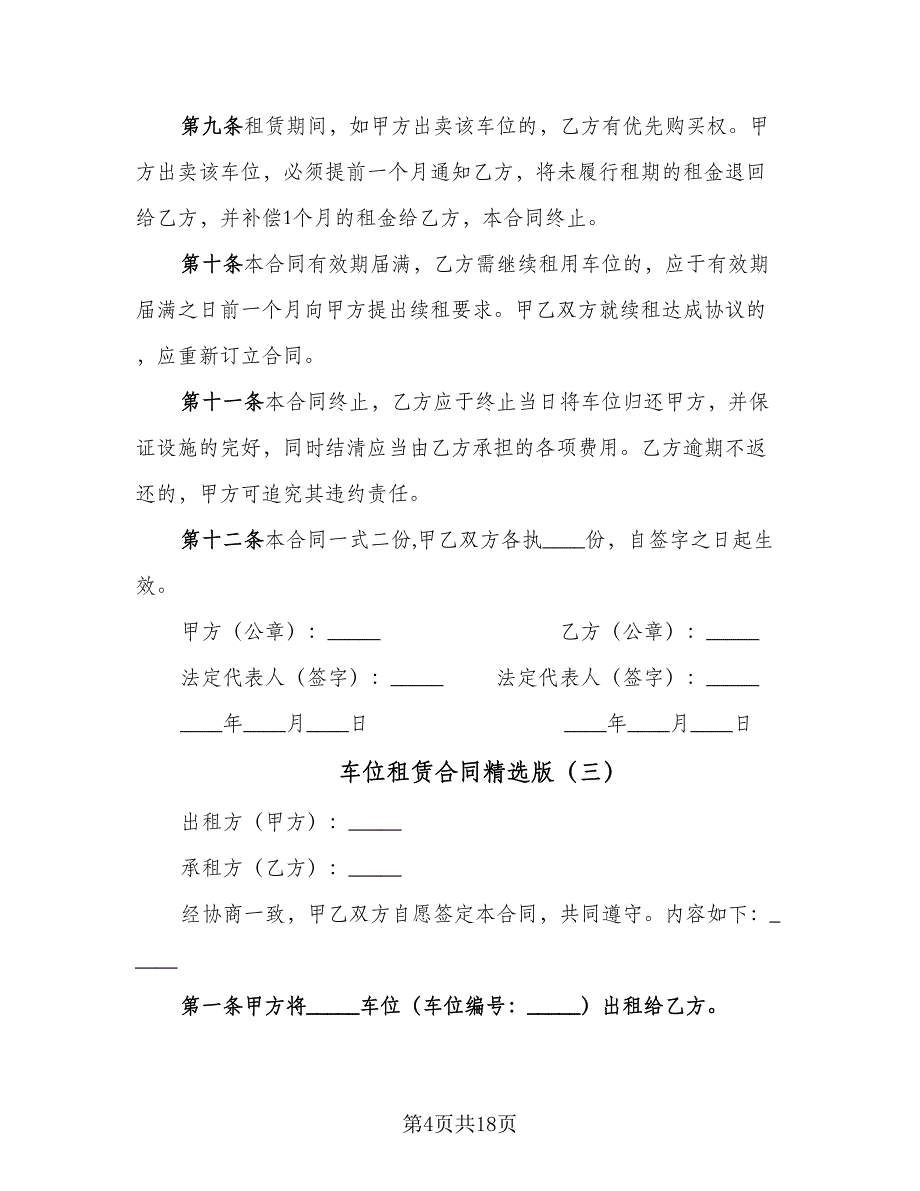 第九条租赁期间，如甲方出卖该车位的，乙方有优先购买权。甲
方出卖该车位，必须提前一个月通知乙方，将未履行租期的租金退回
给乙方，并补偿1个月的租金给乙方，本合同终止。
第十条本合同有效期届满，乙方需继续租用车位的，应于有效期
届满之日前一个月向甲方提出续租要求。甲乙双方就续租达成协议的
，应重新订立合同。
第十一条本合同终止，乙方应于终止当日将车位归还甲方，并保
证设施的完好，同时结清应当由乙方承担的各项费用。乙方逾期不返
还的，甲方可追究其违约责任。
第十二条本合同一式二份,甲乙双方各执____份，自签字之日起生
效。
甲方（公章）：_____ 乙方（公章）：_____
法定代表人（签字）：_____ 法定代表人（签字）：_____
____年____月____日 ____年____月____日
车位租赁合同精选版（三）
出租方（甲方）：_____
承租方（乙方）：_____
经协商一致，甲乙双方自愿签定本合同，共同遵守。内容如下：_
____
第一条甲方将_____车位（车位编号：_____）出租给乙方。
第4页共18页